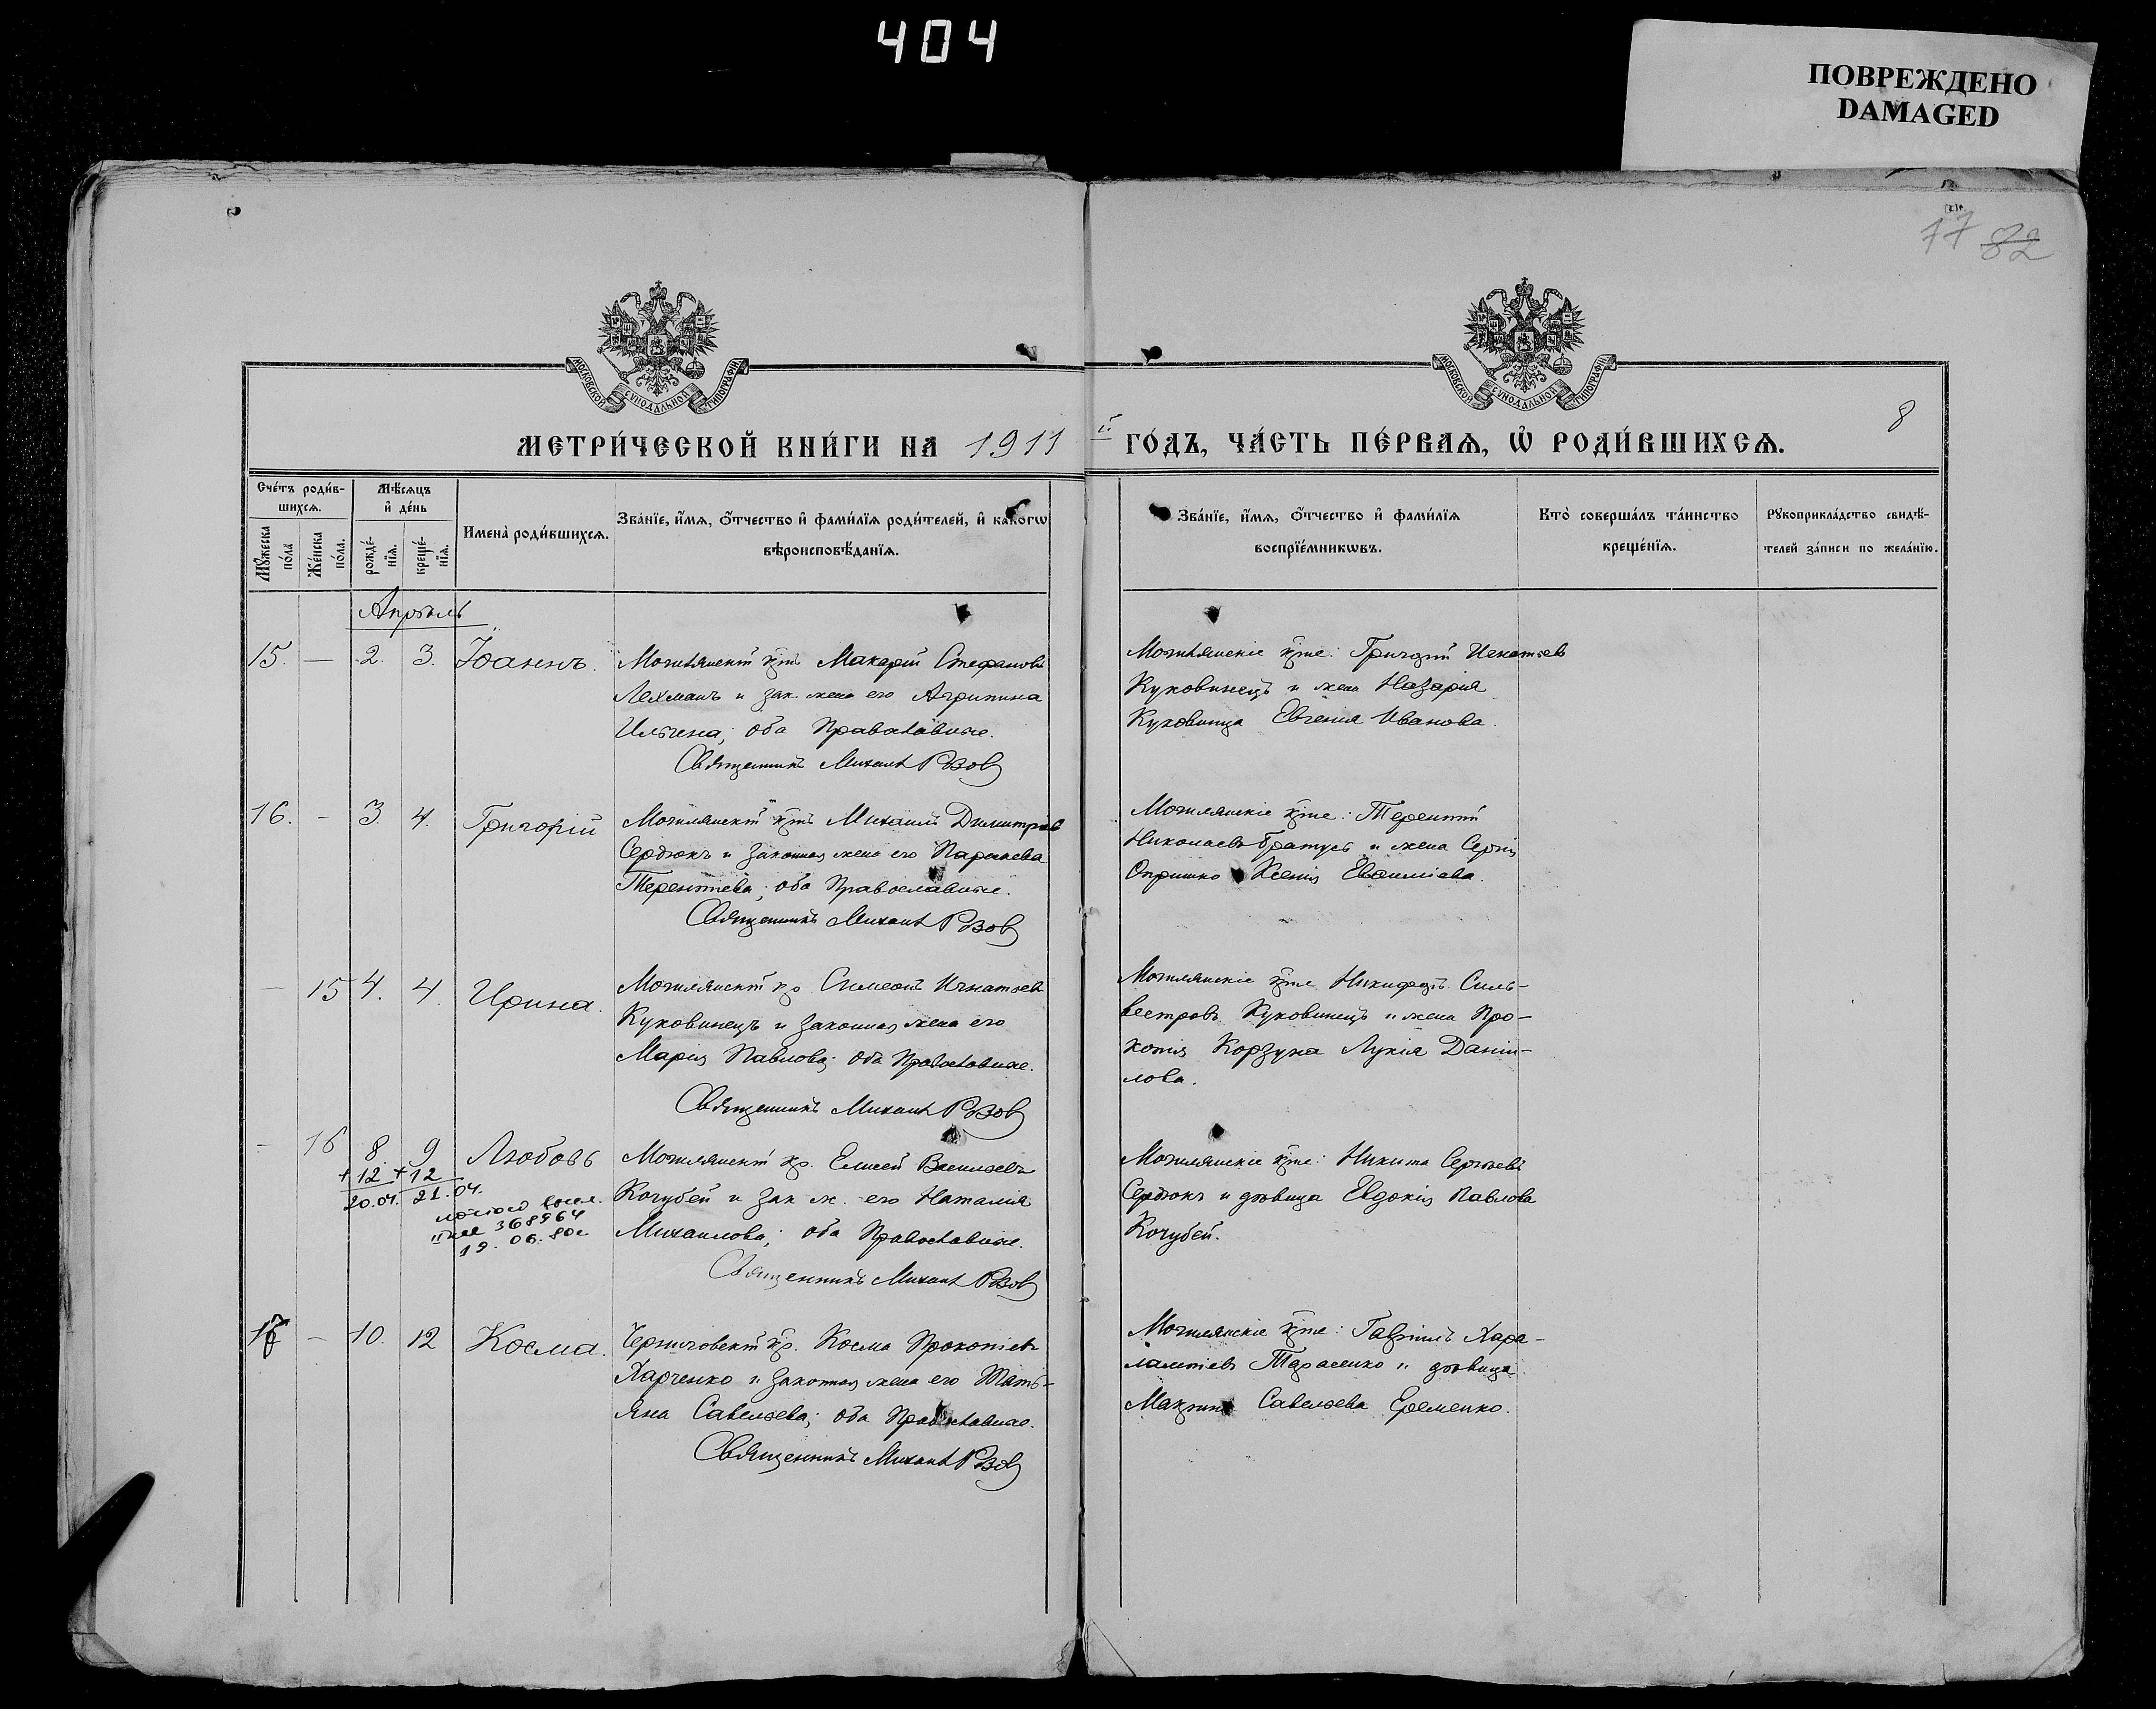 404
ПОВРЕЖДЕНО
DAMAGED
17 82
МОСКОВСКОЙ СѴНОДАЛЬНОЙ ТИПОГРАФІИ
МОСКОВСКОЙ СѴНОДАЛЬНОЙ ТИПОГРАФІИ
8
МЕТРИ́ЧЕСКОЙ КНИ́ГИ НА 1911 й ГО́ДЪ, ЧА́СТЬ ПЕ́РВАѦ, Ѡ҆ РОДИ́ВШИХСѦ.
Сче́тъ роди́в-
шихсѧ.
Мꙋ́жеска по́ла
Же́нска по́ла.
Мѣ́сѧцъ
и҆ де́нь
рожде́-нїѧ.
креще́-нїѧ.
Имена̀ роди́вшихсѧ.
Зва́нїе, и҆́мѧ, ѻ҆́тчество и҆ фами́лїѧ роди́телей, и҆ како́гѡ
вѣроисповѣ́данїѧ.
Зва́нїе, и҆́мѧ, ѻ҆́тчество и҆ фами́лїѧ
воспрїе́мникѡвъ.
Кто̀ соверша́лъ та́инство
креще́нїѧ.
Рꙋкоприкла́дство свидѣ́-
телей за́писи по жела́нїю.
Апрѣль
15. — 2. 3. Іоаннъ.
Могилянскій кр̃нъ Макарій Стефановъ
Лехманъ и зак. жена его Агрипина
Ильина; оба Православные.
Священникъ Михаил Рѣзов
Могилянскіе кр̃не: Григорій Игнатьевъ
Куковинецъ и жена Назарія
Куковинца Евгенія Иванова.
16. — 3 4. Григорій
Могилянскій кр̃нъ Михаилъ Димитріев
Сердюкъ и законная жена его Параскева
Терентіева; оба Православные.
Священникъ Михаил Рѣзов
Могилянскіе кр̃не: Терентій
Николаевъ Братусь и жена Сергія
Опришко Ксенія Евфиміева.
— 15 4. 4. Ирина.
Могилянскій кр. Симеонъ Игнатьевъ
Куковинецъ и законная жена его
Марія Павлова; оба Православные.
Священникъ Михаил Рѣзов
Могилянскіе кр̃не Никифоръ Силь-
вестровъ Куковинецъ и жена Про-
копія Корзуна Лукія Дани-
лова.
— 16 8 9 Любовь
+12 +12
20.04. 21.04.
368964
19.06.80г
Могилянскій кр. Елисей Васильевъ
Кочубей и зак. ж. его Наталія
Михаилова; оба Православные.
Священникъ Михаил Рѣзов
Могилянскіе кр̃не: Никита Сергѣевъ
Сердюкъ и дѣвица Евдокія Павлова
Кочубей.
17 — 10. 12 Косма.
Черниговскій кр. Косма Прокопіевъ
Харченко и законная жена его Тать-
яна Савельева; оба Православные.
Священникъ Михаил Рѣзов
Могилянскіе кр̃не: Гавріилъ Хара-
лампіевъ Тарасенко и дѣвица
Макрина Савельева Еременко.